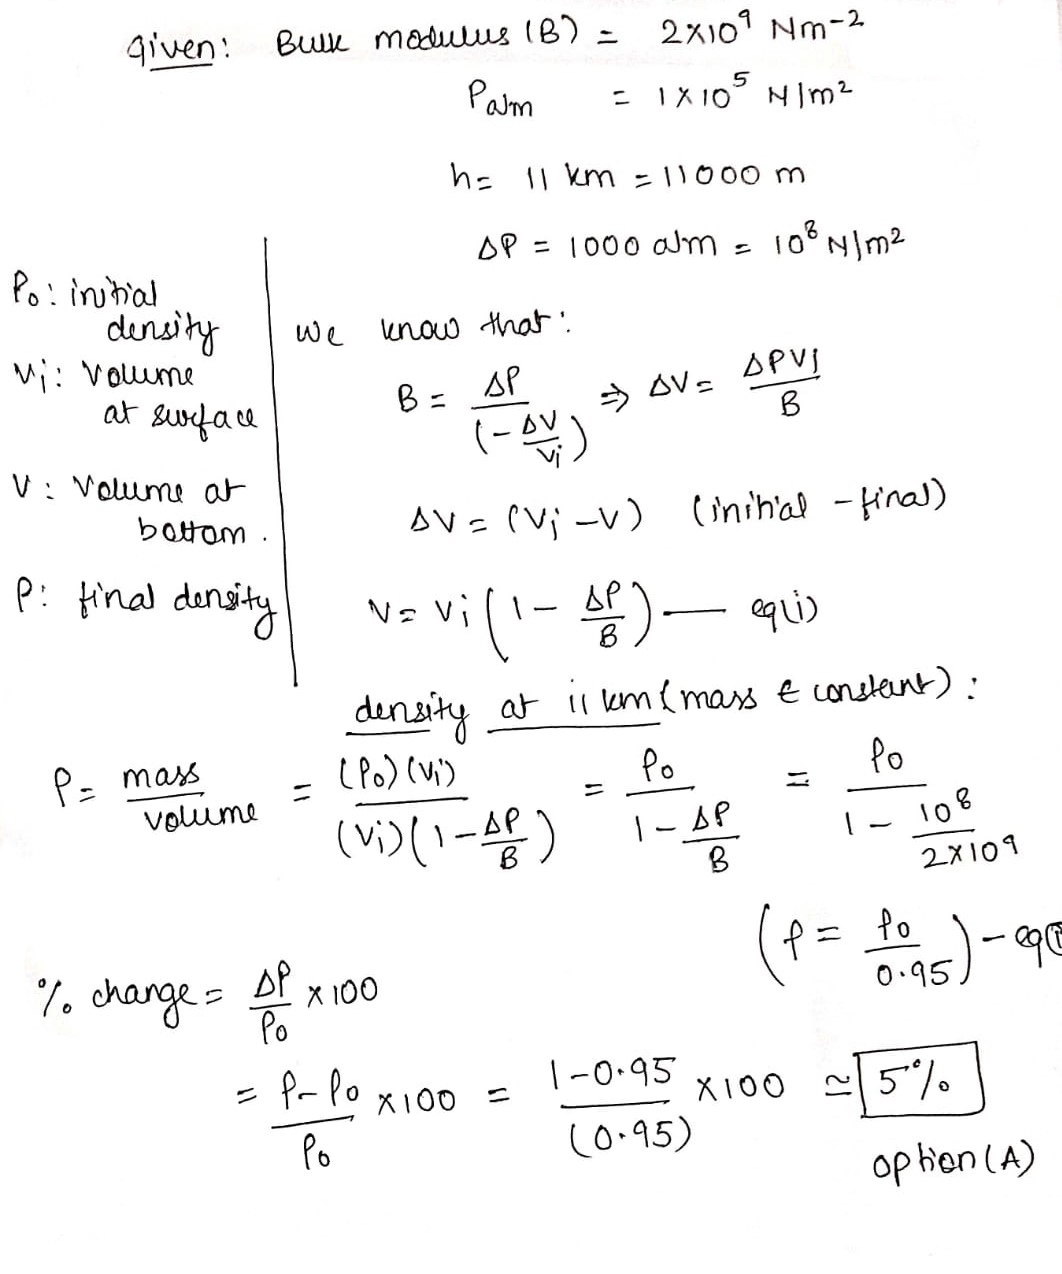 given: Bulk modulus (B) = 2×10⁹ Nm-2
Patm = 1×10⁵ N/m²
h= 11 km = 11000 m
ΔP = 1000 atm = 10⁸ N/m²
ρ₀: initial density
Vi: Volume at surface
V: Volume at bottom.
ρ: final density
we know that:
B = ΔP/(-ΔV/Vi) ⇒ ΔV = ΔPVi/B
ΔV = (Vi - V) (initial - final)
V = Vi(1 - ΔP/B) — eq(i)
density at 11 km (mass ∈ constant):
ρ = mass/volume = (ρ₀)(Vi)/(Vi)(1-ΔP/B) = ρ₀/1-ΔP/B = ρ₀/1-10⁸/2×10⁹
(ρ = ρ₀/0.95) - eq(ii
% change = Δρ/ρ₀ × 100
= ρ-ρ₀/ρ₀ ×100 = 1-0.95/(0.95) ×100 ≃ 5%
option (A)